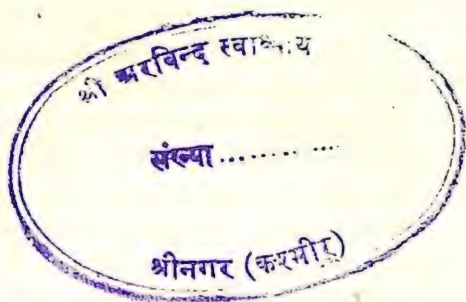 श्री अरविन्द स्वाध्याय
संख्या ........ ...
श्रीनगर (कश्मीर)